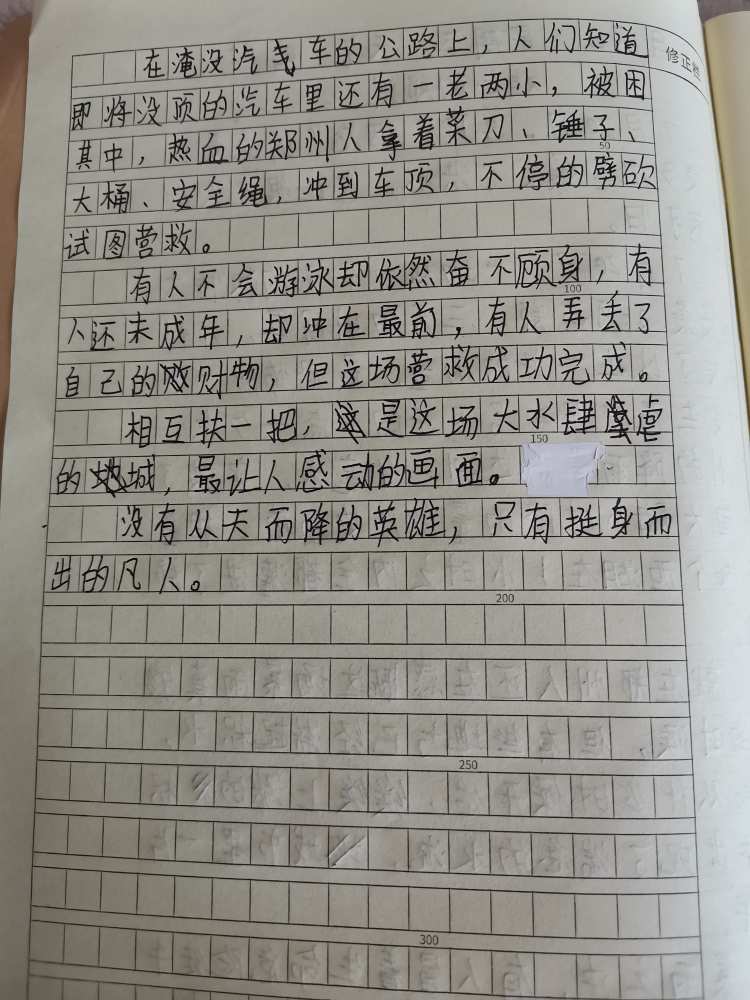 在淹没汽车的公路上，人们知道
修正栏
即将没顶的汽车里还有一老两小，被困
其中，热血的郑州人拿着菜刀、锤子、
50
大桶、安全绳，冲到车顶，不停的劈砍
试图营救。
有人不会游泳却依然奋不顾身，有
100
人还未成年，却冲在最前，有人弄丢了
自己的财物，但这场营救成功完成。
相互扶一把，是这场大水肆虐
150
的城，最让人感动的画面。
没有从天而降的英雄，只有挺身而
出的凡人。
200
250
300